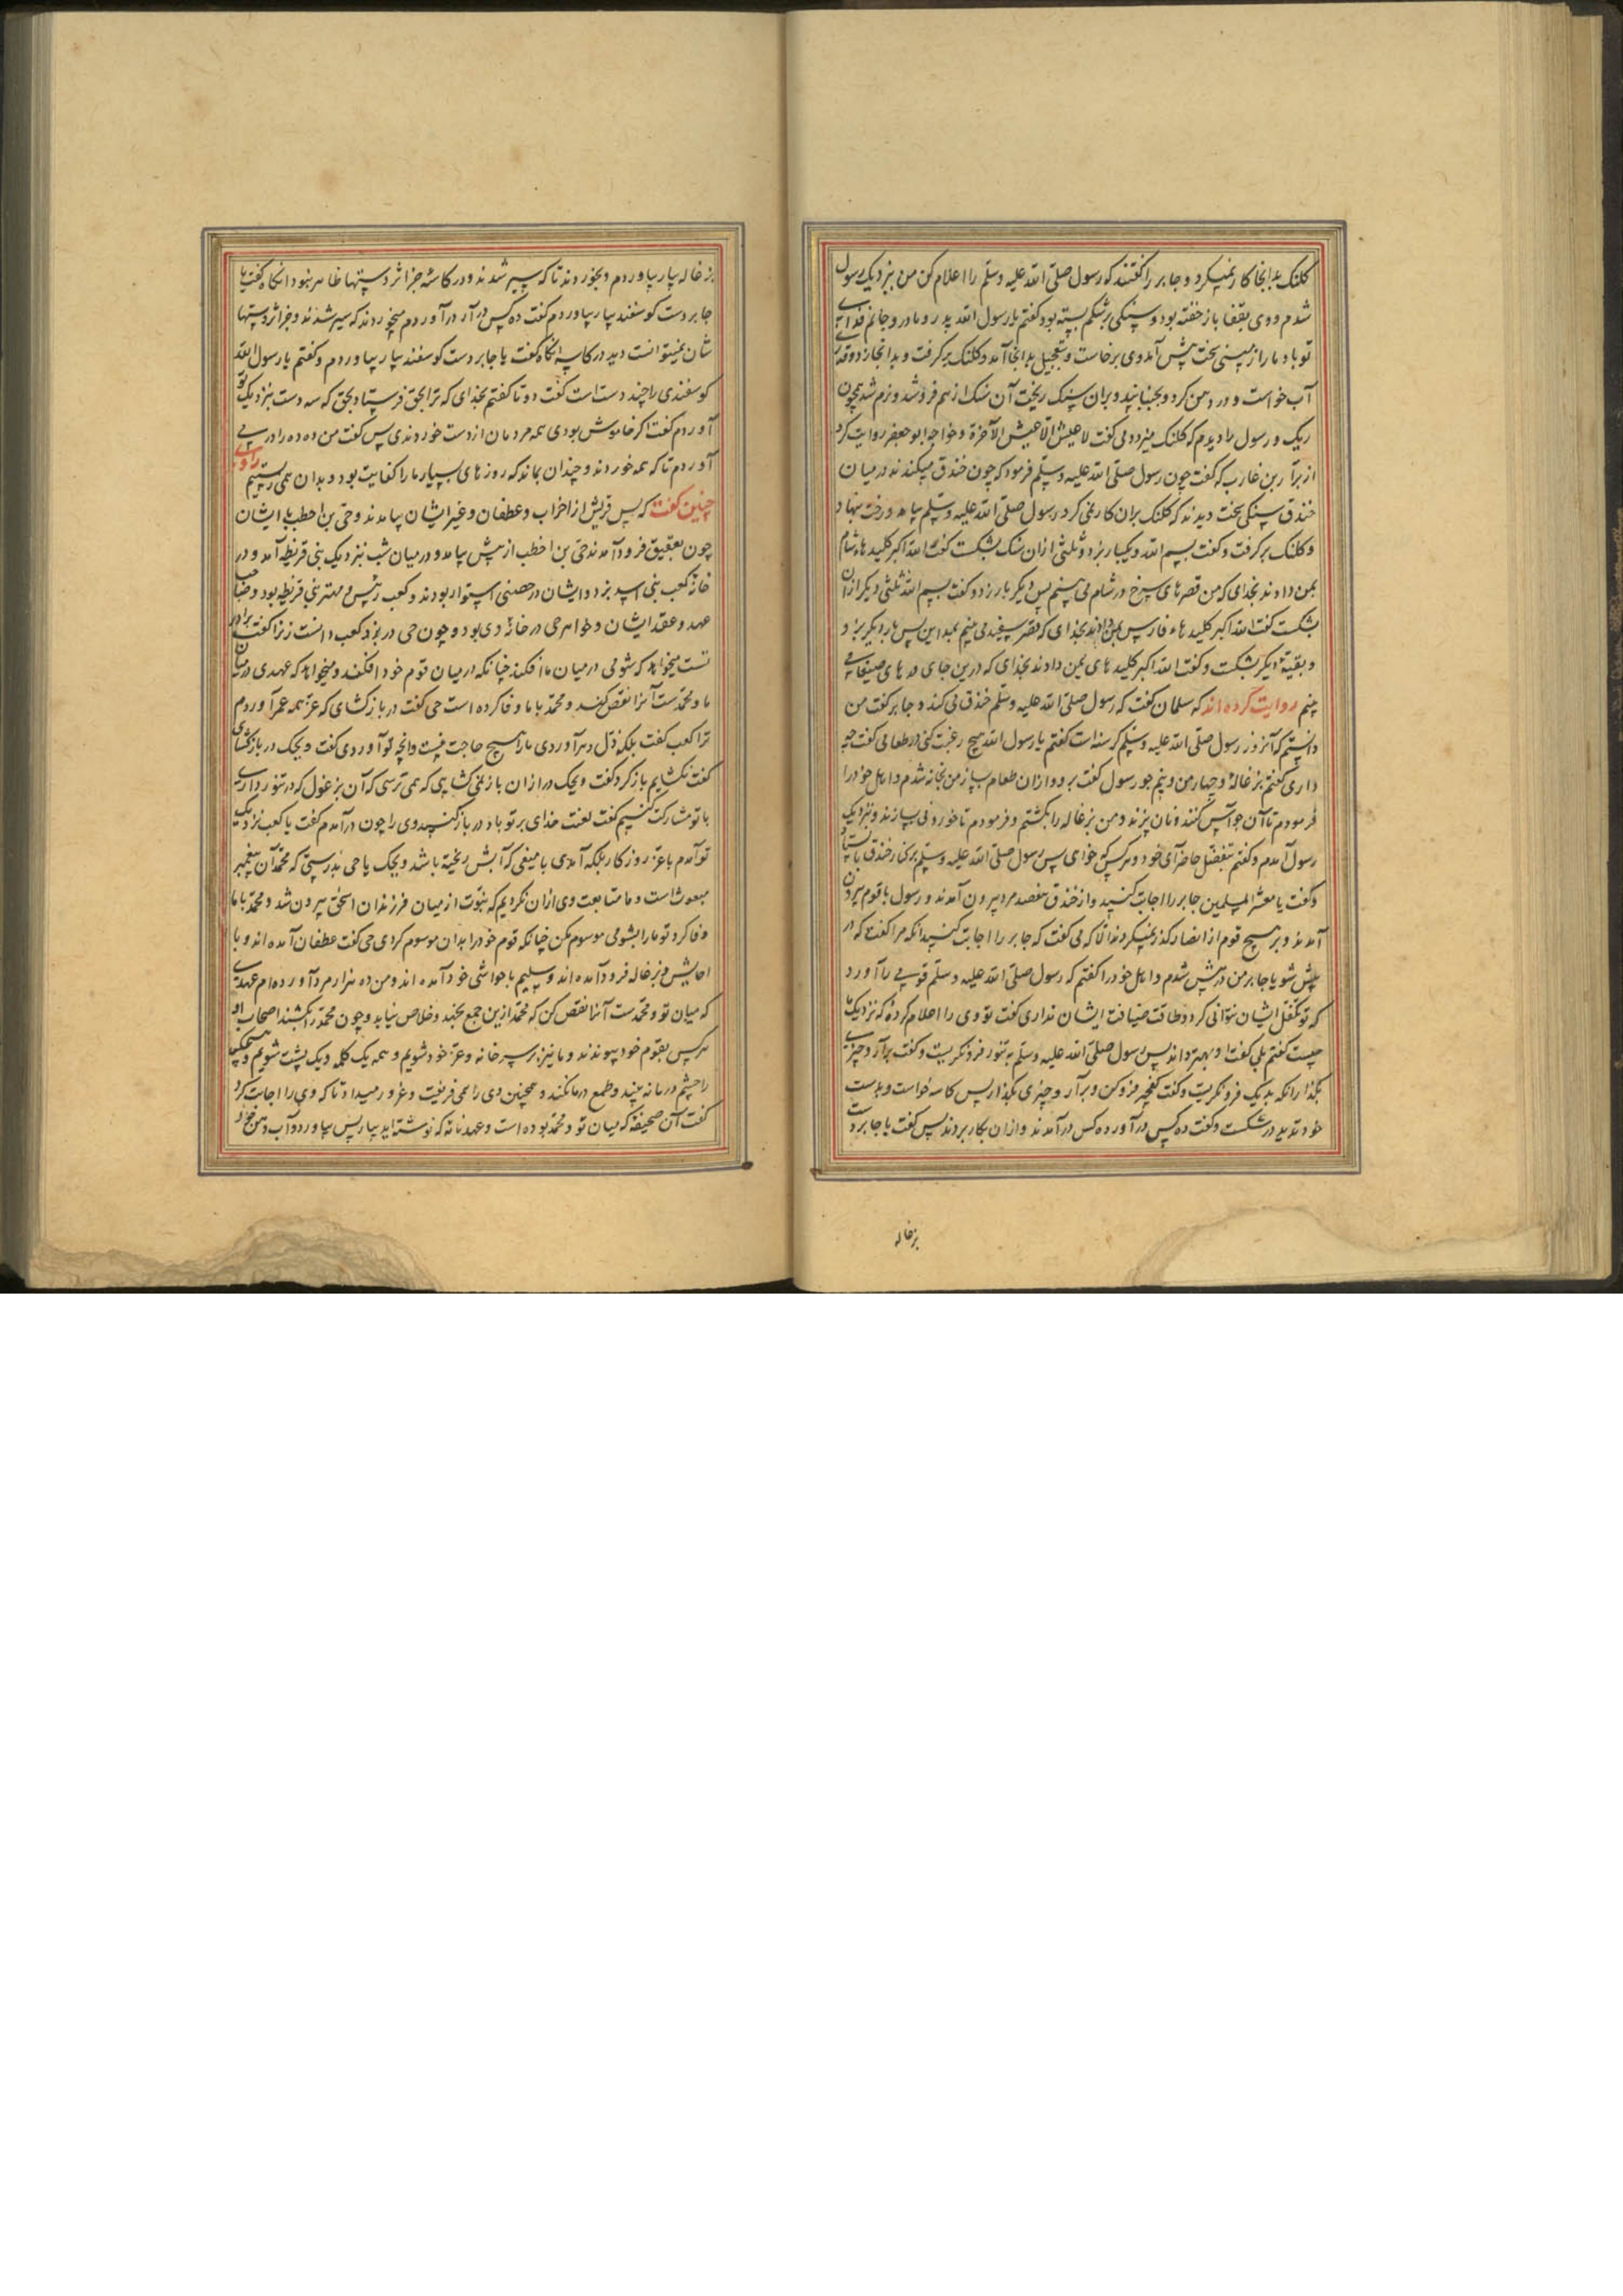 کلنک بدانجا کار نمیکرد و جابر را کفتند که رسول صلی الله علیه وسلم را اعلام کن من بنزدیک رسول
شدم و وی بقفا باز خفته بود و سنکی بر شکم بسته بود کفتم یا رسول الله پدر و مادر و جانم فدای
تو باد ما را زمینی سخت پیش آمد وی برخاست و بتعجیل بدانجا آمد و کلنک برکرفت و بدانجا زد و قدری
آب خواست و در دهن کرد و بجنبانید و بران سنک ریخت آن سنک از هم فرو شد و نرم شد همچون
ریک و رسول را دیدم که کلنک میزد و می کفت لا عیش الا عیش الآخرة و خواجه ابو جعفر روایت کرد
از برآء بن عازب که کفت چون رسول صلی الله علیه وسلم فرمود که چون خندق میکندند در میان
خندق سنکی سخت دیدند که کلنک بران کار نمی کرد رسول صلی الله علیه وسلم بیامد و رخت بنهاد
و کلنک برکرفت و کفت بسم الله و یکبار بزد و ثلثی ازان سنک بشکست کفت الله اکبر کلیدهاء شام
بمن دادند بخدای که من قصرهای سرخ در شام می بینم پس دیکر بار زد و کفت بسم الله ثلثی دیکر ازان
بشکست کفت الله اکبر کلیدهاء فارس بمن دادند بخدای که قصر سفید می بینم بعد ازین پس بار دیکر بزد
و بقیتۀ دیکر بشکست و کفت الله اکبر کلیدهای یمن دادند بخدای که درین جای درهای صنعا می
بینم روایت کرده اند که سلمان کفت که رسول صلی الله علیه وسلم خندق می کند و جابر کفت من
دانستم که آنروز رسول صلی الله علیه وسلم کرسنه است کفتم یا رسول الله هیچ رغبت کنی در طعامی کفت چه
داری کفتم بزغالۀ و چهار من و نیم جو رسول کفت برو و ازان طعام بساز من بخانه شدم و اهل خود را
فرمودم تا آن جو آس کنند و نان پزند و من بزغاله را بکشتم و فرمودم تا خوردنی بسازند و بنزدیک
رسول آمدم و کفتم بتفضل حاضر آی خود و هر کس که خواهی پس رسول صلی الله علیه وسلم بر کنار خندق بایستاد
و کفت یا معشر المسلمین جابر را اجابت کنید و از خندق هفصد مرد بیرون آمدند و رسول با قوم بیرون
آمدند و بر هیچ قوم از انصار کذر نمیکردند الا که می کفت که جابر را اجابت کنید آنکه مرا کفت که در
پیش شو یا جابر من در پیش شدم و اهل خود را کفتم که رسول صلی الله علیه وسلم قومی را آورد
که تو تکفل ایشان نتوانی کرد و طاقت ضیافت ایشان نداری کفت تو وی را اعلام کردۀ که نزدیک ما
چیست کفتم بلی کفت او بهتر داند پس رسول صلی الله علیه وسلم به تنور فرو نکریست و کفت برآر و چیزی
بکذار آنکه بدیک فرو نکریست و کفت کفچه فرو کن و برآر و چیزی بکذار پس کاسه خواست و بدست
خود ترید در شکست و کفت ده کس درآور ده کس درآمدند و ازان بکار بردند پس کفت یا جابر دست
بزغاله
بزغاله بیار بیاوردم و بخوردند تا که سیر شدند و در کاسه جز اثر دستها ظاهر نبود آنکاه کفت یا
جابر دست کوسفند بیار بیاوردم کفت ده کس درآر درآوردم میخوردند که سیر شدند و جز اثر دستها
شان نمیتوانست دید در کاسه آنکاه کفت یا جابر دست کوسفند بیار بیاوردم و کفتم یا رسول الله
کوسفندی را چند دست است کفت دو تا کفتم بخدای که ترا بحق فرستاد بحق که سه دست بنزدیک تو
آوردم کفت اکر خاموش بودی همه مردمان از دست خوردندی پس کفت من ده ده را در می
آوردم تا که همه خوردند و چندان بماند که روزهای بسیار ما را کفایت بود و بدان همی زیستیم راوی
چنین کفت که پس قریش از احزاب و عطفان و غیر ایشان بیامدند و حی بن اخطب با ایشان
چون بعقیق فرود آمدند حی بن اخطب از پیش بیامد و در میان شب بنزدیک بنی قریظه آمد و در
خانۀ کعب بنی اسید بزد و ایشان در حصنی استوار بودند و کعب رئیس و مهتر بنی قریظه بود و صاحب
عهد و عقد ایشان و خواهر حی در خانۀ وی بود و چون حی در بزد کعب دانست زنرا کفت برادر
تست میخواهد که شومی در میان ما افکند چنانکه در میان قوم خود افکند و میخواهد که عهدی در میان
ما و محمدست آنرا نقض کند و محمد با ما وفا کرده است حی کفت در بازکشای که عز همه عمر آوردم
ترا کعب کفت بلکه ذل دهر آوردی ما را هیچ حاجت نیست وانچه تو آوردی کفت ویحک در بازکشای
کفت نکشایم بازکرد کفت ویحک در ازان باز نمی کشایی که همی ترسی که آن بزغول که در تنور داری
با تو مشارکت کنیم کفت لعنت خدای بر تو باد در بازکنید وی را چون درآمدم کفت یا کعب نزدیک
تو آمدم با عز روزکار بلکه آمدی با میغی که آبش ریخته باشد ویحک یا حی بدرستی که محمد آن پیغمبر
مبعوث است و ما متابعت وی ازان نکردیم که نبوت از میان فرزندان اسحق بیرون شد و محمد با ما
وفا کرد تو ما را بشومی موسوم مکن چنانکه قوم خود را بدان موسوم کردی حی کفت عطفان آمده اند و با
احابیش و بزغاله فرود آمده اند و سلیم با حواشی خود آمده اند و من ده هزار مرد آورده ام عهدی
که میان تو و محمدست آنرا نقض کن که محمد ازین جمع نجهد و خلاص نیابد و چون محمد را بکشند اصحاب او
هر کس بقوم خود پیوندند و ما نیز بر سر خانه و عز خود شویم و همه یک کلمه و یک پشت شویم و هیچکس
را چشم در ما نه بیند و طمع در ما نکند و همچنین وی را همی فریفت و غرور میداد تا که وی را اجابت کرد
کفت آن صحیفه که میان تو و محمد بوده است و عهدنامه که نوشته اید بیار پس بیاورد و آب دهن